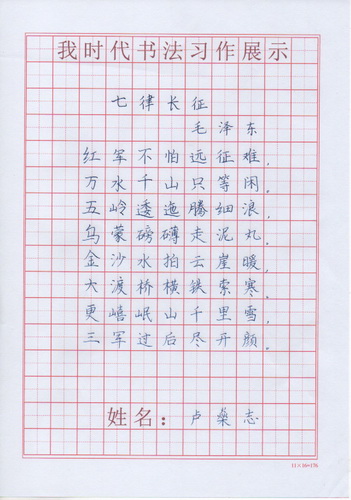 我时代书法习作展示
七律长征
毛泽东
红军不怕远征难，
万水千山只等闲。
五岭透迤腾细浪，
乌蒙磅礴走泥丸。
金沙水拍云崖暖，
大渡桥横铁索寒。
更嘻岷山千里雪，
三军过后尽开颜。
姓名：卢燊志
11×16=176